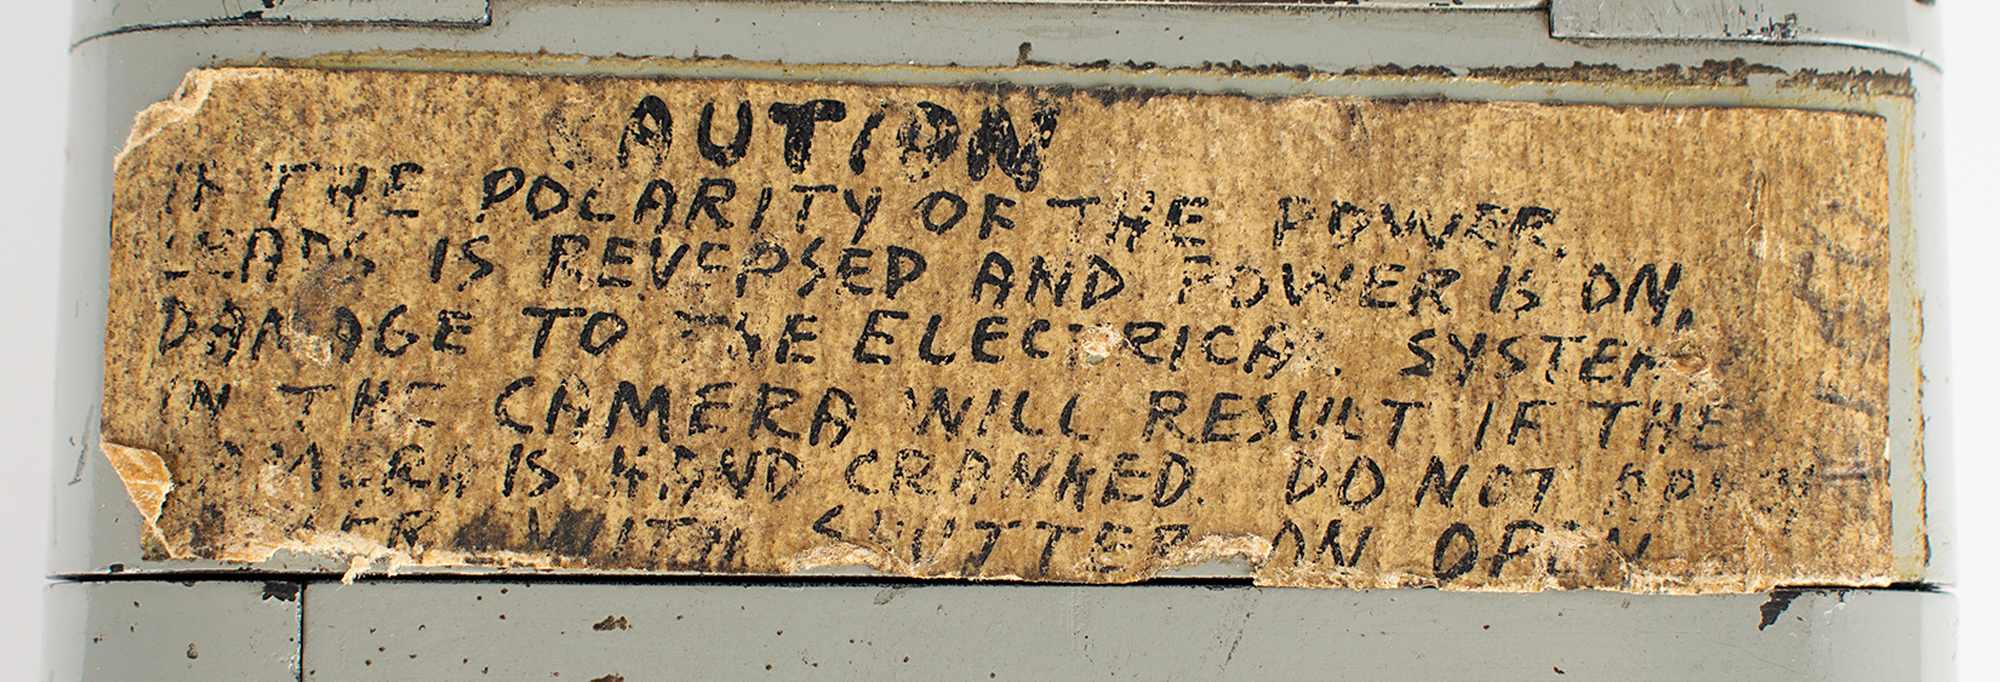 CAUTION
IF THE POLARITY OF THE POWER
LEADS IS REVERSED AND POWER IS ON,
DAMAGE TO THE ELECTRICAL SYSTEM
IN THE CAMERA WILL RESULT IF THE
CAMERA IS HAND CRANKED. DO NOT APPLY
POWER WITH SHUTTER ON OPEN